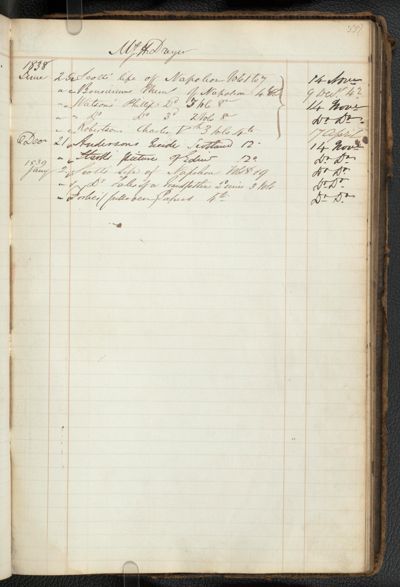 337
Mr H Drayer
1838
June 25 Scott's life of Napoleon Vols 1 to 7 14 Novr
" " Bourienns Mem of Napoleon 4 8vo 9 Decr 42
" " Watsons Phillip Do 3 Vols 8vo 14 Novr
" " Do Do 3d 2 Vols 8o Do Do
" " Robertsons Charles Vth 3 Vols 4to 17 April
6 Decr " Andersons Guide Scotland 12o 14 Novr
" " picture of Edinr 12o Do Do
1839
Jany 2 Scotts life of Napoleon Vol 8 & 9 Do Do
" " Do Tales of a Grandfather 2 series 3 Vols Do Do
" " 4to Do Do